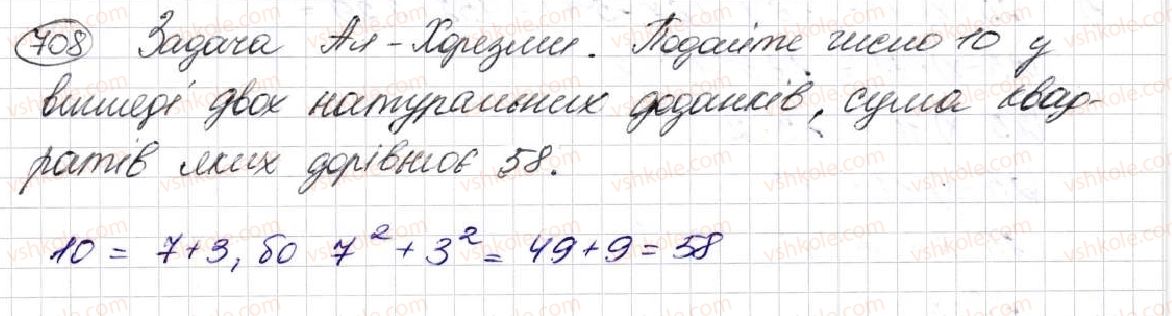 708 Задача Ал-Хорезми. Подайте число 10 у
вигляді двох натуральних доданків, сума квад-
ратів яких дорівнює 58.
10 = 7+3, бо 7² + 3² = 49+9 = 58
vshkole.com